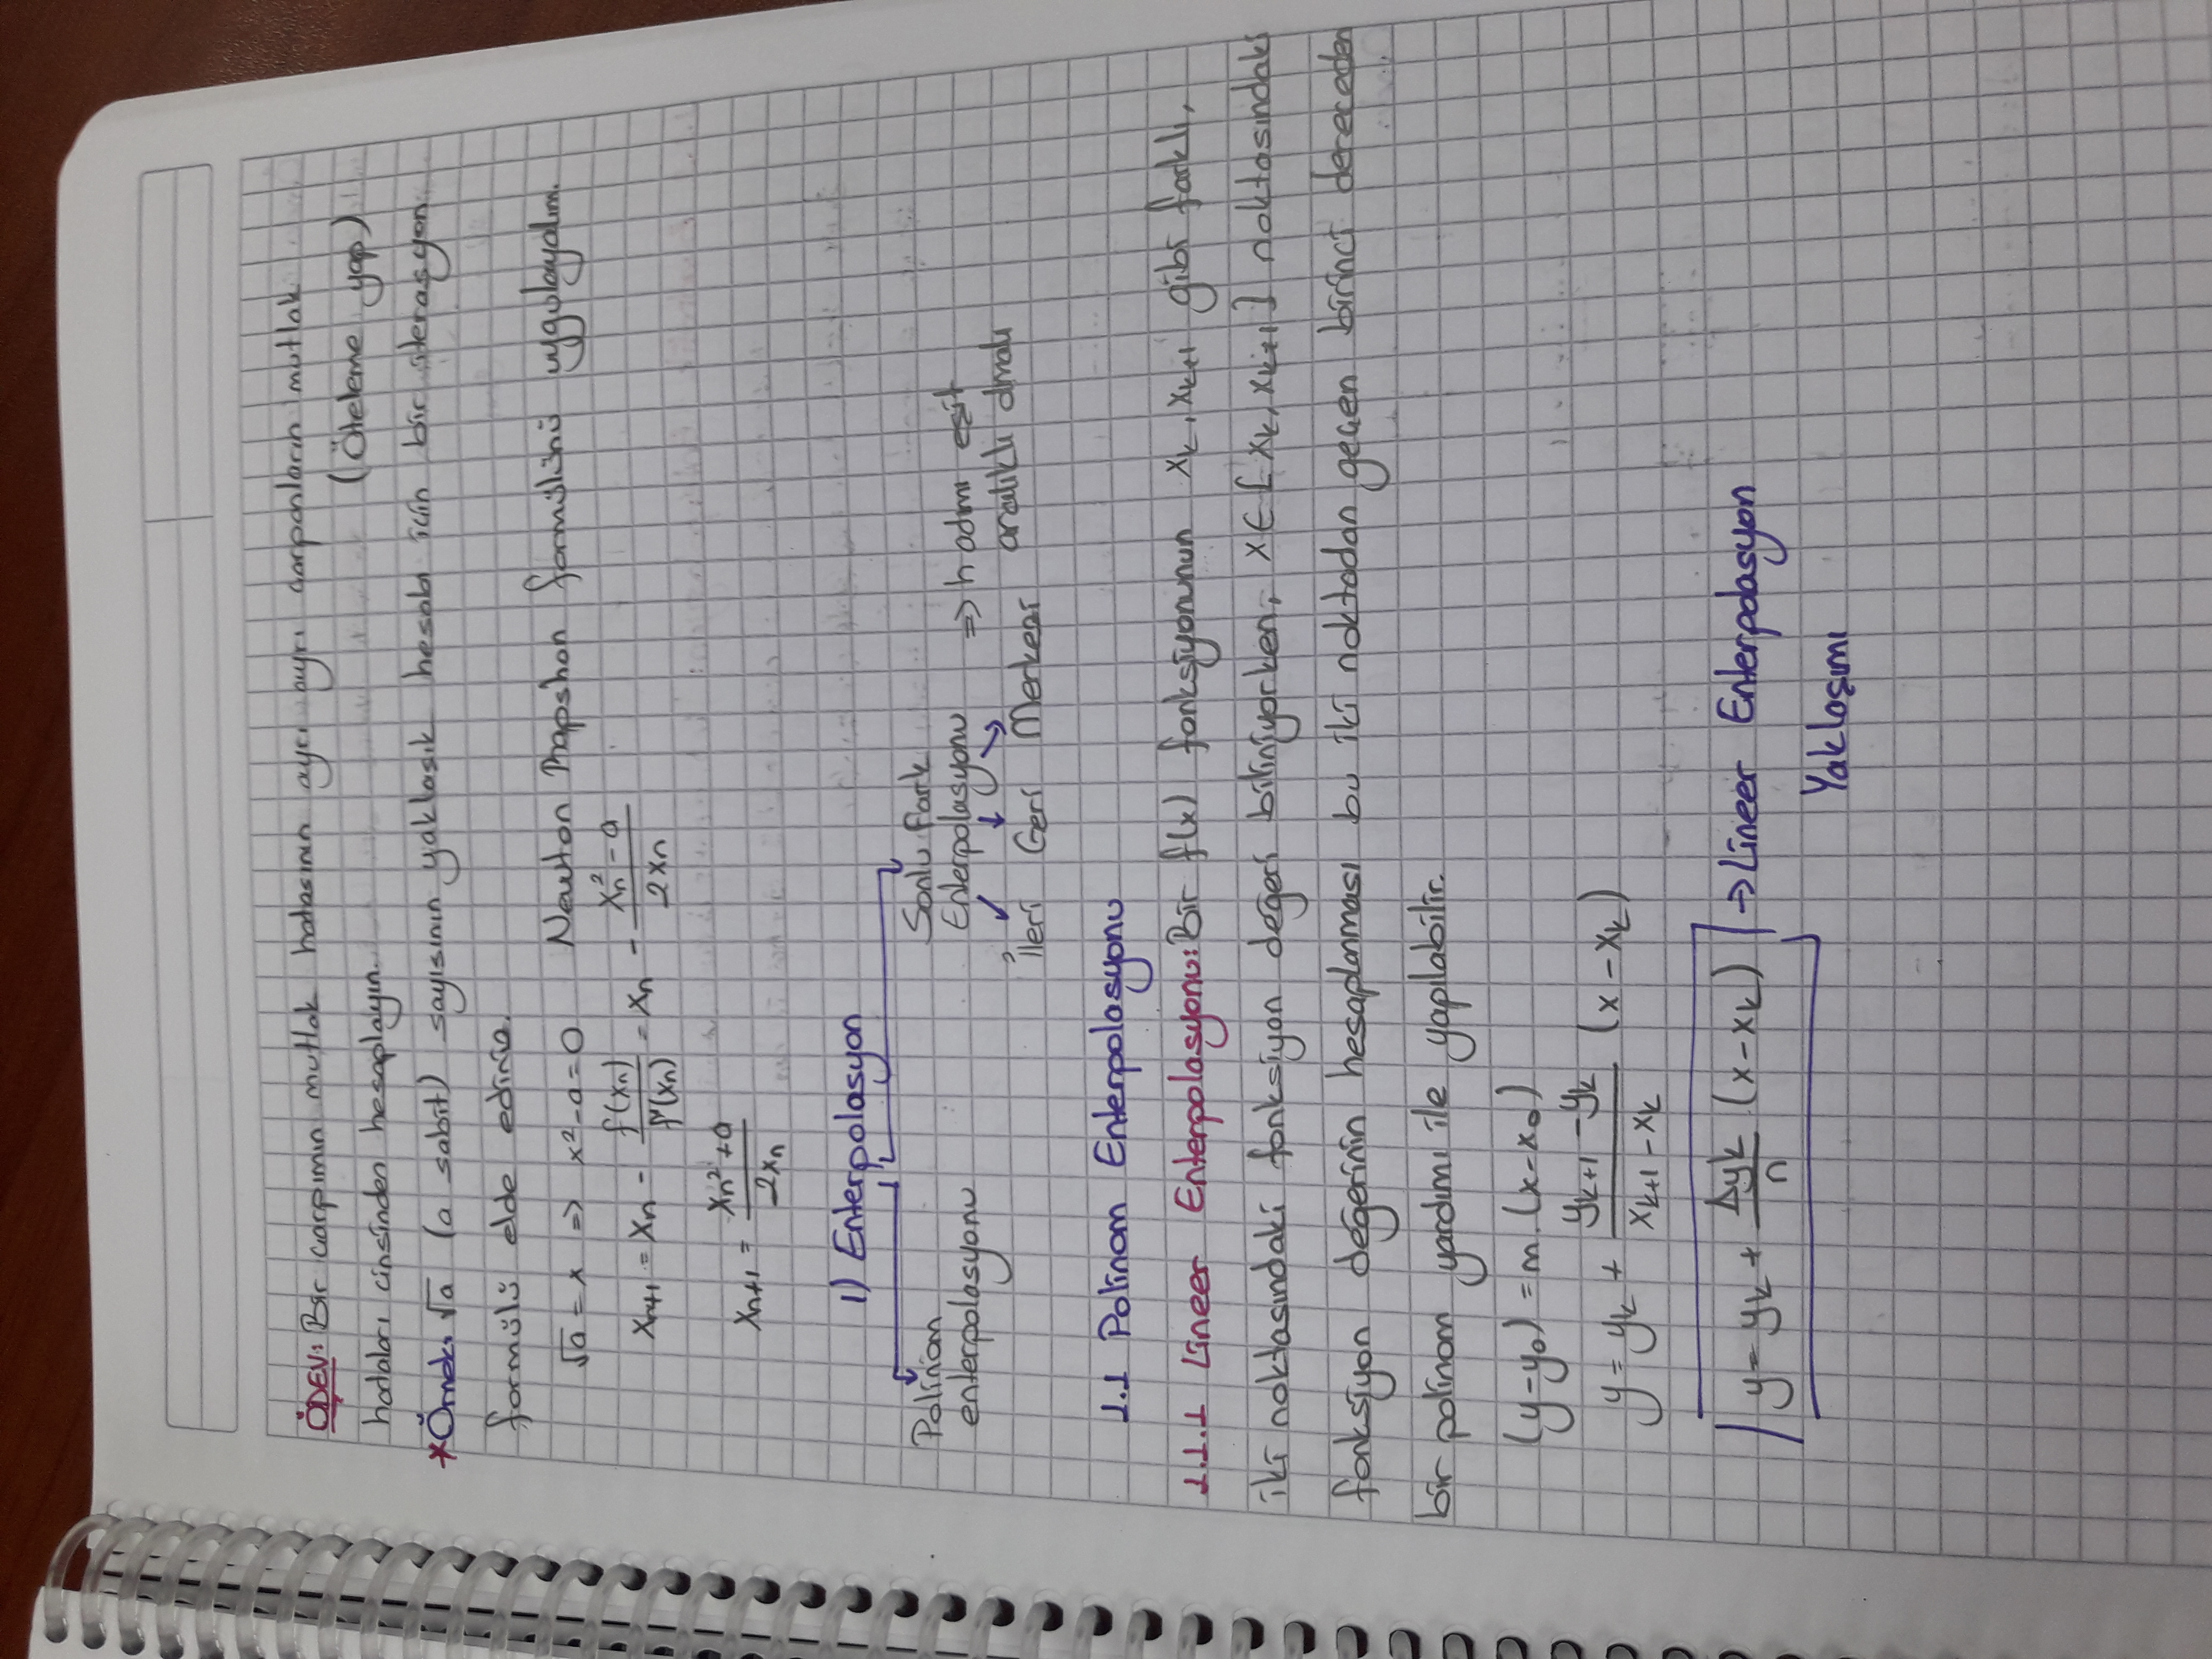 ÖDEV: Bir çarpımın mutlak hatasının ayrı ayrı çarpanların mutlak
(Öteleme yap)
hataları cinsinden hesaplayın.
*Örnek: √a (a sabit) sayısının yaklaşık hesabı için bir iterasyon
formülü elde ediniz.
√a = x ⇒ x²-a=0 Newton Rapshon formülünü uygulayalım.
xₙ₊₁ = xₙ - f(xₙ)/f'(xₙ) = xₙ - (xₙ² - a)/(2xₙ)
xₙ₊₁ = (xₙ² + a)/(2xₙ)
1) Enterpolasyon
Polinom enterpolasyonu
Sonlu Fark Enterpolasyonu ⇒ h adımı eşit aralıklı olmalı
İleri Geri Merkezi
1.1 Polinom Enterpolasyonu
1.1.1 Lineer Enterpolasyonu: Bir f(x) fonksiyonunun xₖ, xₖ₊₁ gibi farklı,
iki noktasındaki fonksiyon değeri biliniyorken, x∈[xₖ, xₖ₊₁] noktasındaki
fonksiyon değerinin hesaplanması bu iki noktadan geçen birinci dereceden
bir polinom yardımı ile yapılabilir.
(y-y₀) = m.(x-x₀)
y = yₖ + (yₖ₊₁ - yₖ)/(xₖ₊₁ - xₖ) (x - xₖ)
y = yₖ + Δyₖ/n (x-xₖ) → Lineer Enterpolasyon
Yaklaşımı